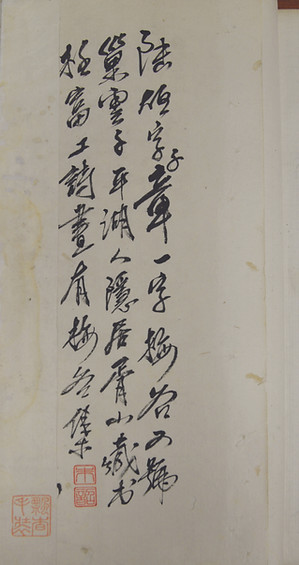 陸烜字子章一字梅谷又號
巢雲子平湖人隱居胥山藏书
極富工詩畫有梅谷集